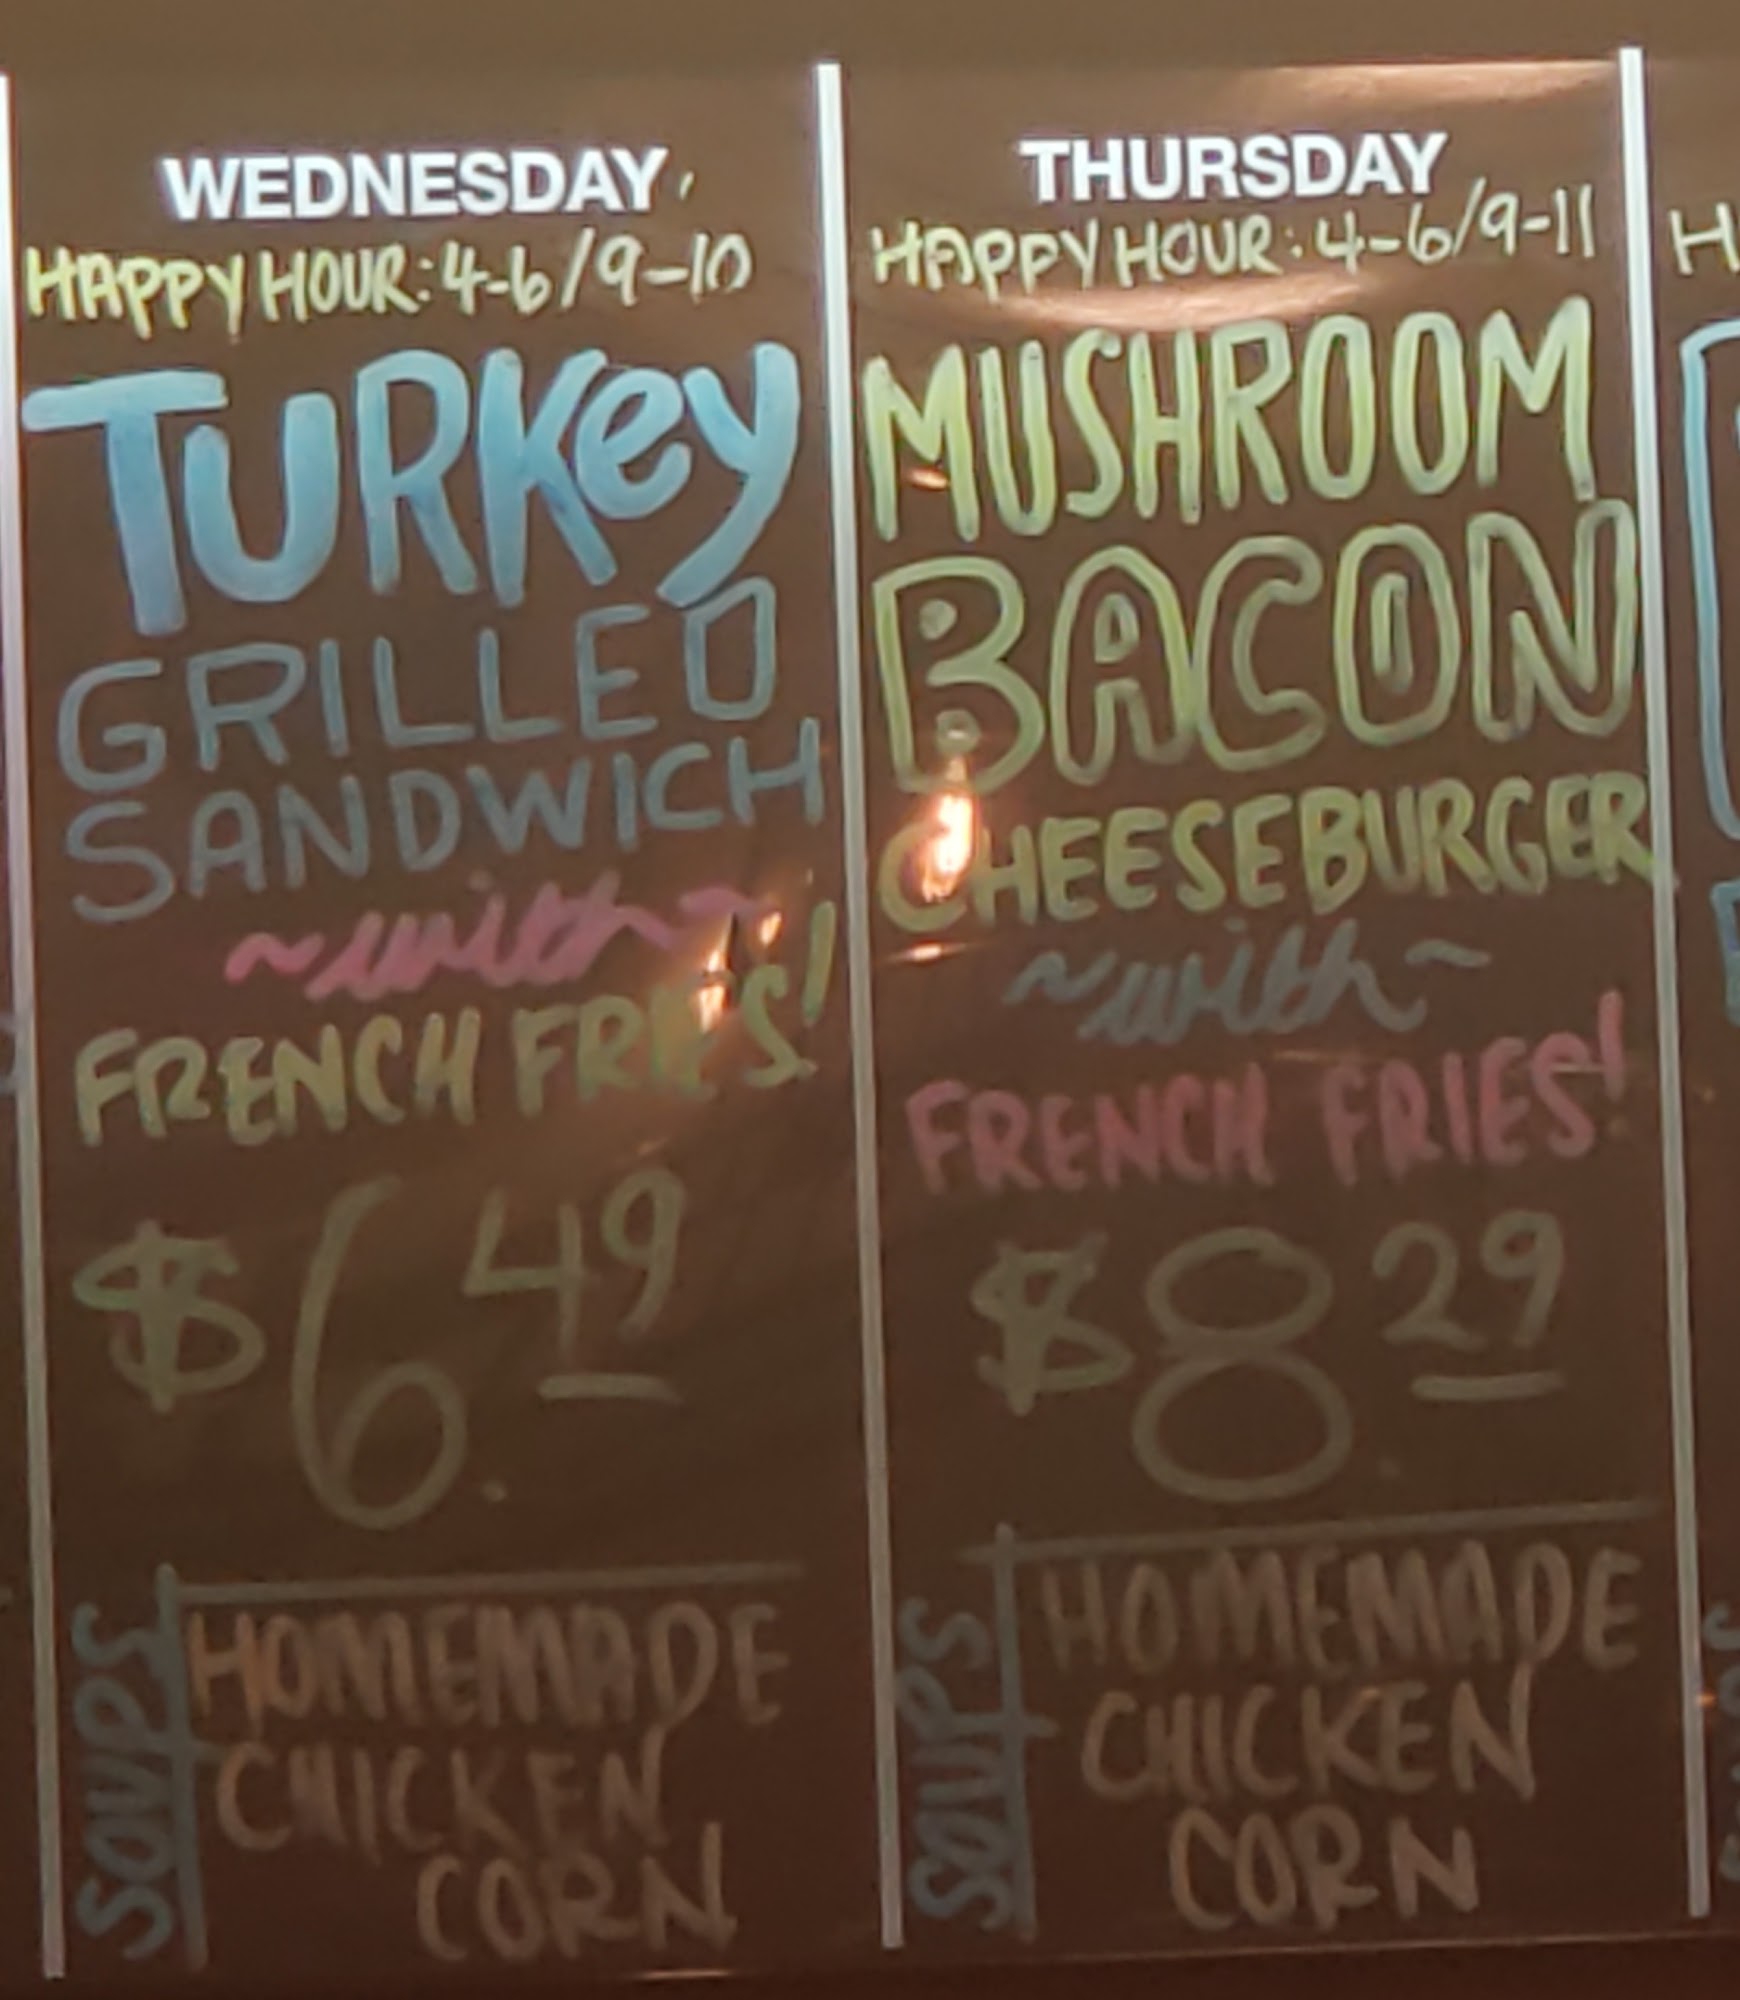 WEDNESDAY
HAPPY HOUR: 4-6/9-10
TURKey
GRILLED
SANDWICH
~with~
FRENCH FRIES!
$6.49
SOUPS
HOMEMADE
CHICKEN
CORN
THURSDAY
HAPPY HOUR: 4-6/9-11
MUSHROOM
BACON
CHEESEBURGER
~with~
FRENCH FRIES!
$8.29
SOUPS
HOMEMADE
CHICKEN
CORN
H